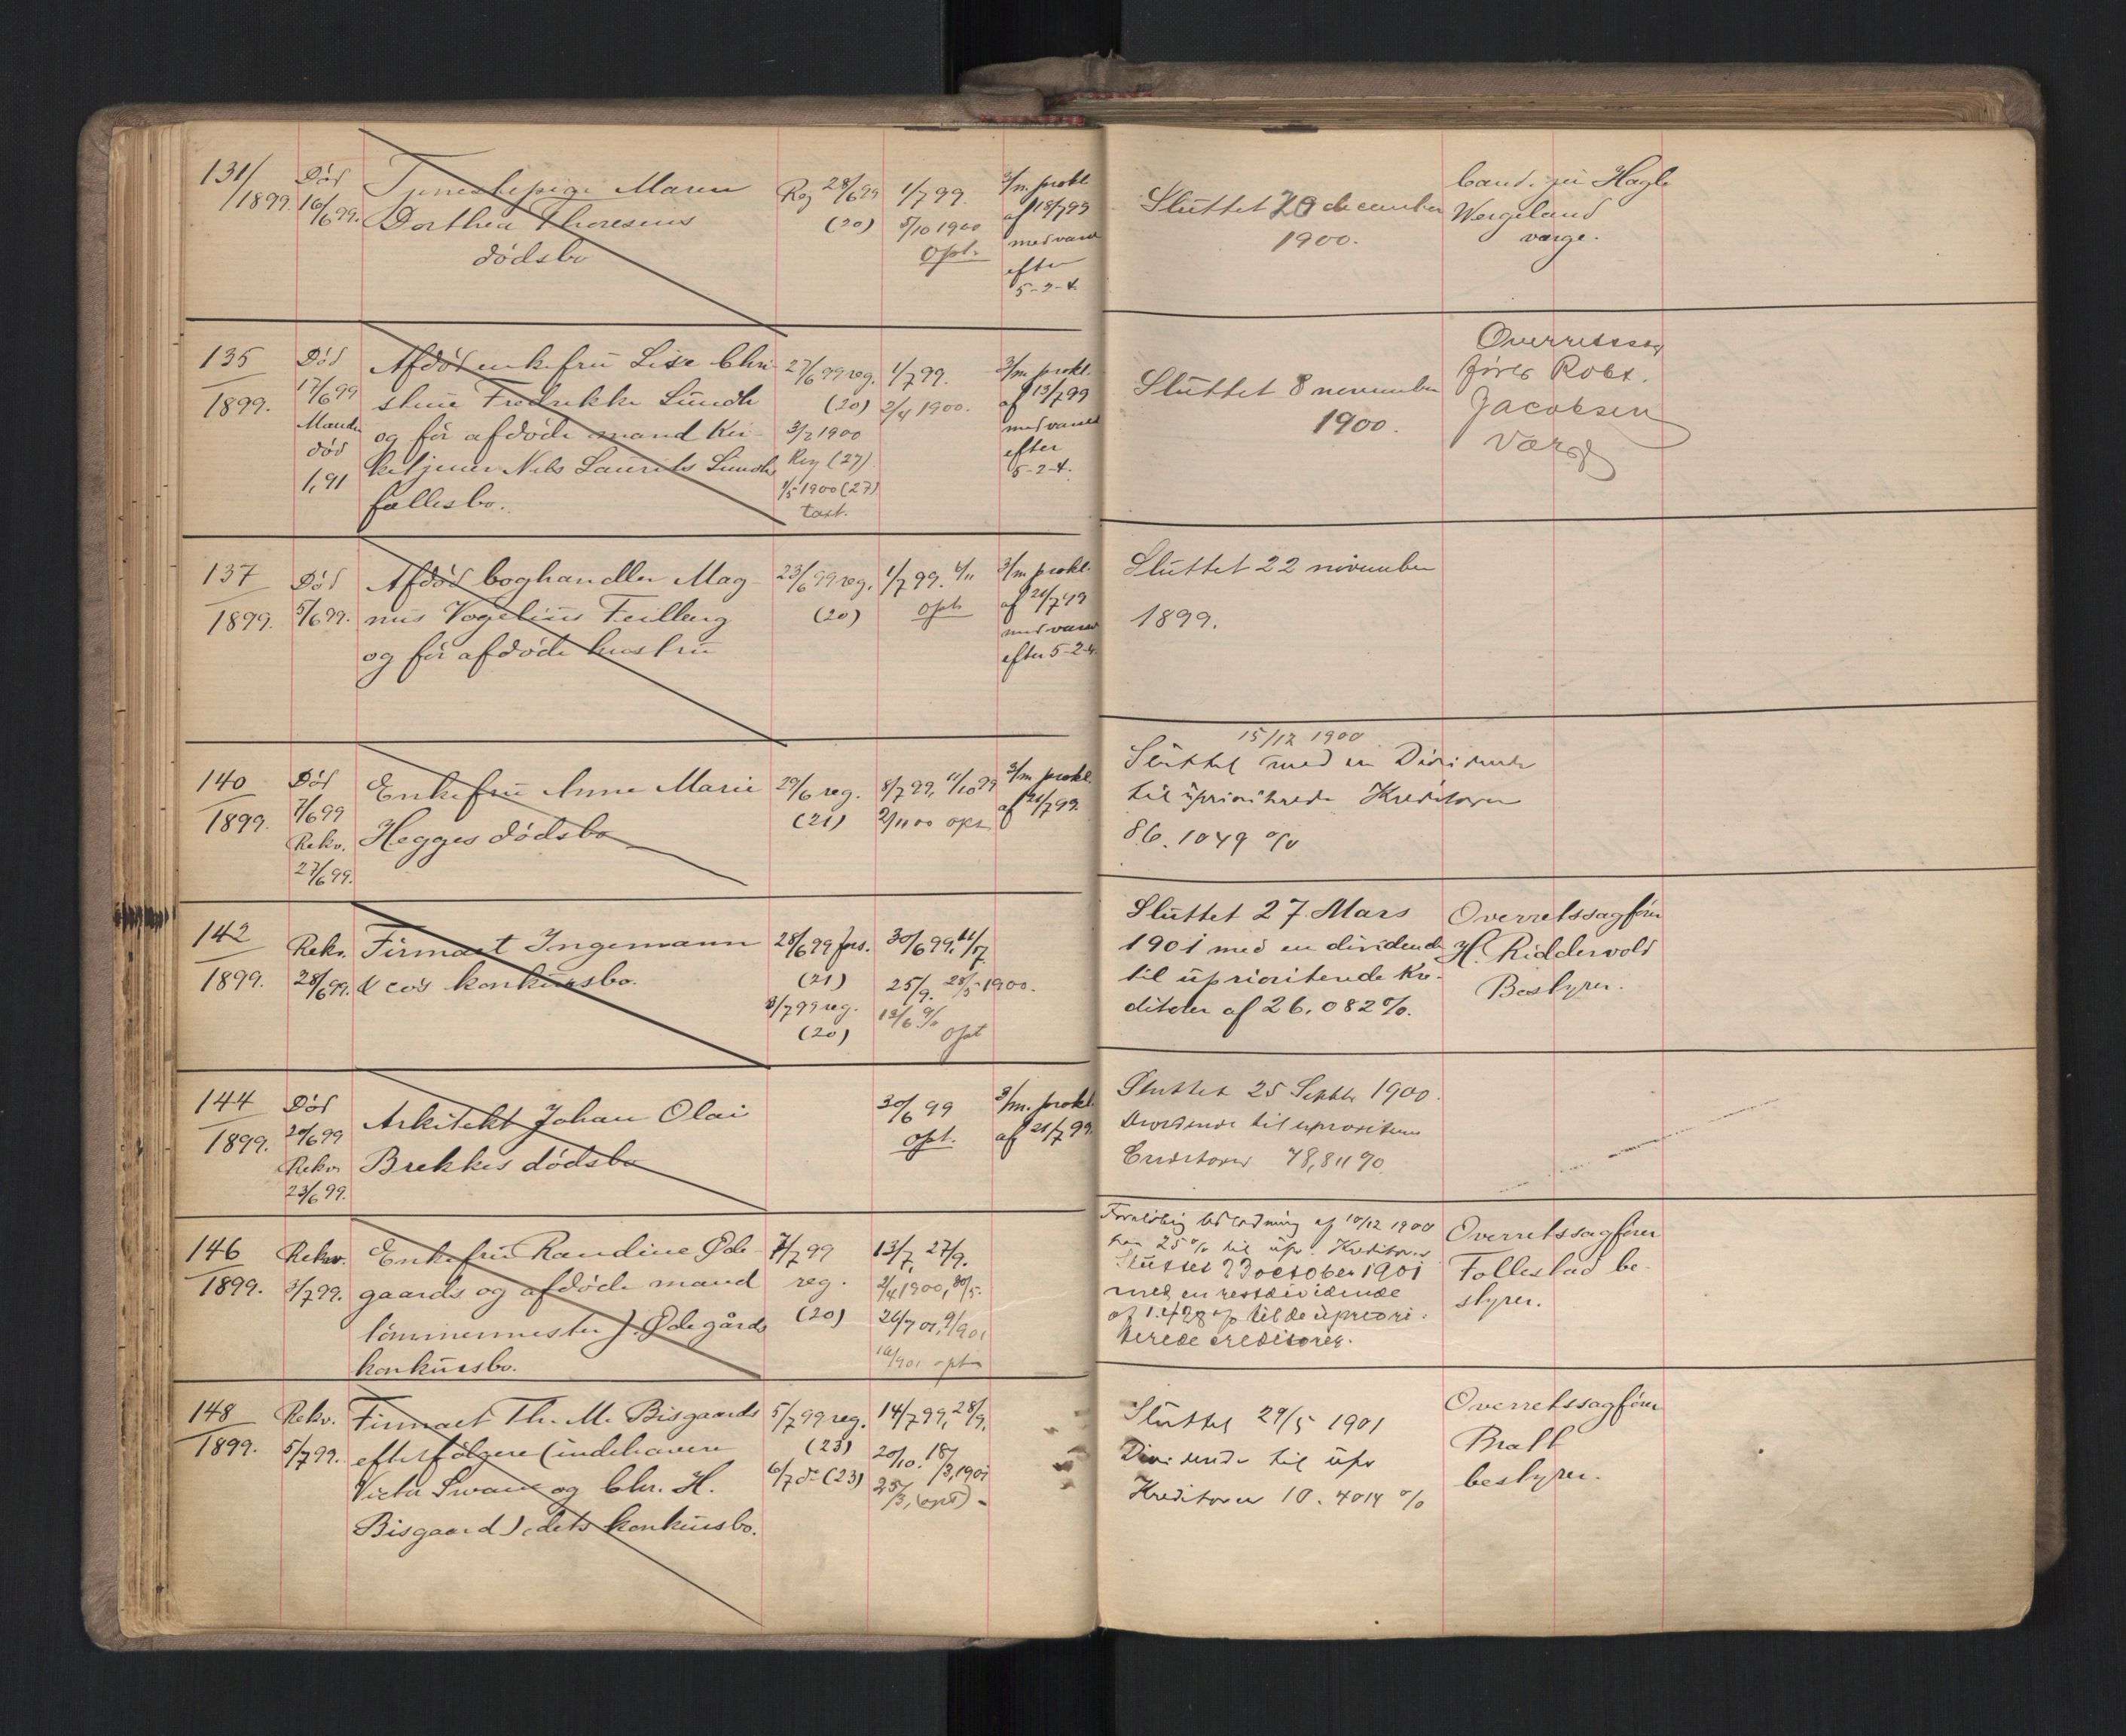 131/
/1899.
Död
16/6 99.
Tjenestepige Maren
Dorthea Thoresens
dödsbo
Reg 28/6 99
(20)
1/7 99.
5/10 1900
Opt.
3/m prokl.
af 18/7 99
med varsel
efter
5-2-4
Sluttet 20 december
1900.
Cand. jur Hagb.
Wergeland
værge.
135
1899.
Död
17/6 99
Mande
död
1,91
Afdöd enkefrü Lise Chri-
stine Fredrikke Lündh
og för afdöde mand Kir-
ketjener Nils Laürits Lündhs
fællesbo.
27/6 99 reg.
(20)
3/2 1900
Reg (27)
1/5 1900 (27)
taxt.
1/7 99.
2/4 1900.
3/m prokl.
af 13/7 99
med varsel
efter
5-2-4.
Slüttet 8 november
1900.
Overretssag
förer Robt.
Jacobsen
værge
137
1899.
Död
5/6 99.
Afdöd boghandler Mag-
nüs Vogeliüs Feilberg
og för afdöde hüstrü
23/6 99 reg.
(20)
1/7 99.
opt.
3/m prokl.
af 21/7 99
med varsel
efter 5-2-4.
Slüttet 22 november
1899.
140
1899.
Död
7/6 99
Rekv.
27/6 99.
Enkefrü Anne Marie
Hegges dödsbo
29/6 reg.
(21)
8/7 99, 11/10 99
2/11 00 opt.
3/m prokl.
af 21/7 99.
15/12 1900
Slüttet med en Dividende
til üprioriterede Kreditorer
86.1049 %
142
1899.
Rekv.
28/6 99.
Firmaet Ingemann
& co's konkürsbo.
28/6 99 fors.
(21)
3/7 99 reg.
(20)
30/6 99, 11/7
25/9. 28/5 1900.
Opt
Slüttet 27 Mars
1901 med en dividende
til üprioriterede Kre-
ditorer af 26.082 %.
Overretssagförer
H. Riddervold
Bestyrer.
144
1899.
Död
20/6 99
Rekv.
23/6 99.
Arkitekt Johan Olai
Brekkes dödsbo
30/6 99
Opt.
3/m. prokl.
af 21/7 99.
Sluttet 25 Septbr 1900.
Dividende til uprioriterte
Creditorer 78,811 %
146
1899.
Rekv.
3/7 99.
Enkefrü Randine Öde-
gaards og afdöde mand
tömmermester J. Ödegårds
konkürsbo.
7/7 99
reg.
(20)
13/7, 27/9.
2/4 1900, 30/5.
26/7 01, 9/9 01
opt
Foreløbig udlodning af 10/12 1900
25 % til üpr. Kreditorer
Sluttet 23 october 1901
med en restdividende
af 1.428 % til de üpriori-
terede creditorer.
Overretssagförer
Follestad be-
styrer.
148
1899.
Rekv.
5/7 99.
Firmaet Th. M. Bisgaards
efterfölgere (indehavere
Victor Swane og Chr. H.
Bisgaard), dets konkürsbo.
5/7 99 reg.
(23)
6/7 do (23)
14/7 99, 28/9.
20/10. 18/3, 1901
25/3, (opt) -
Slüttet 29/5 1901
Dividende til üpr
Kreditorer 10.4014 %
Overretssagförer
Bratt
bestyrer.